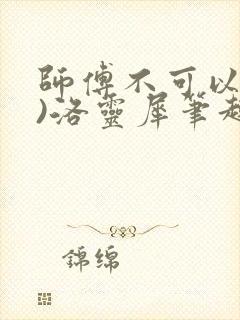 師傅不可以
)洛靈犀筆趣
錦绵